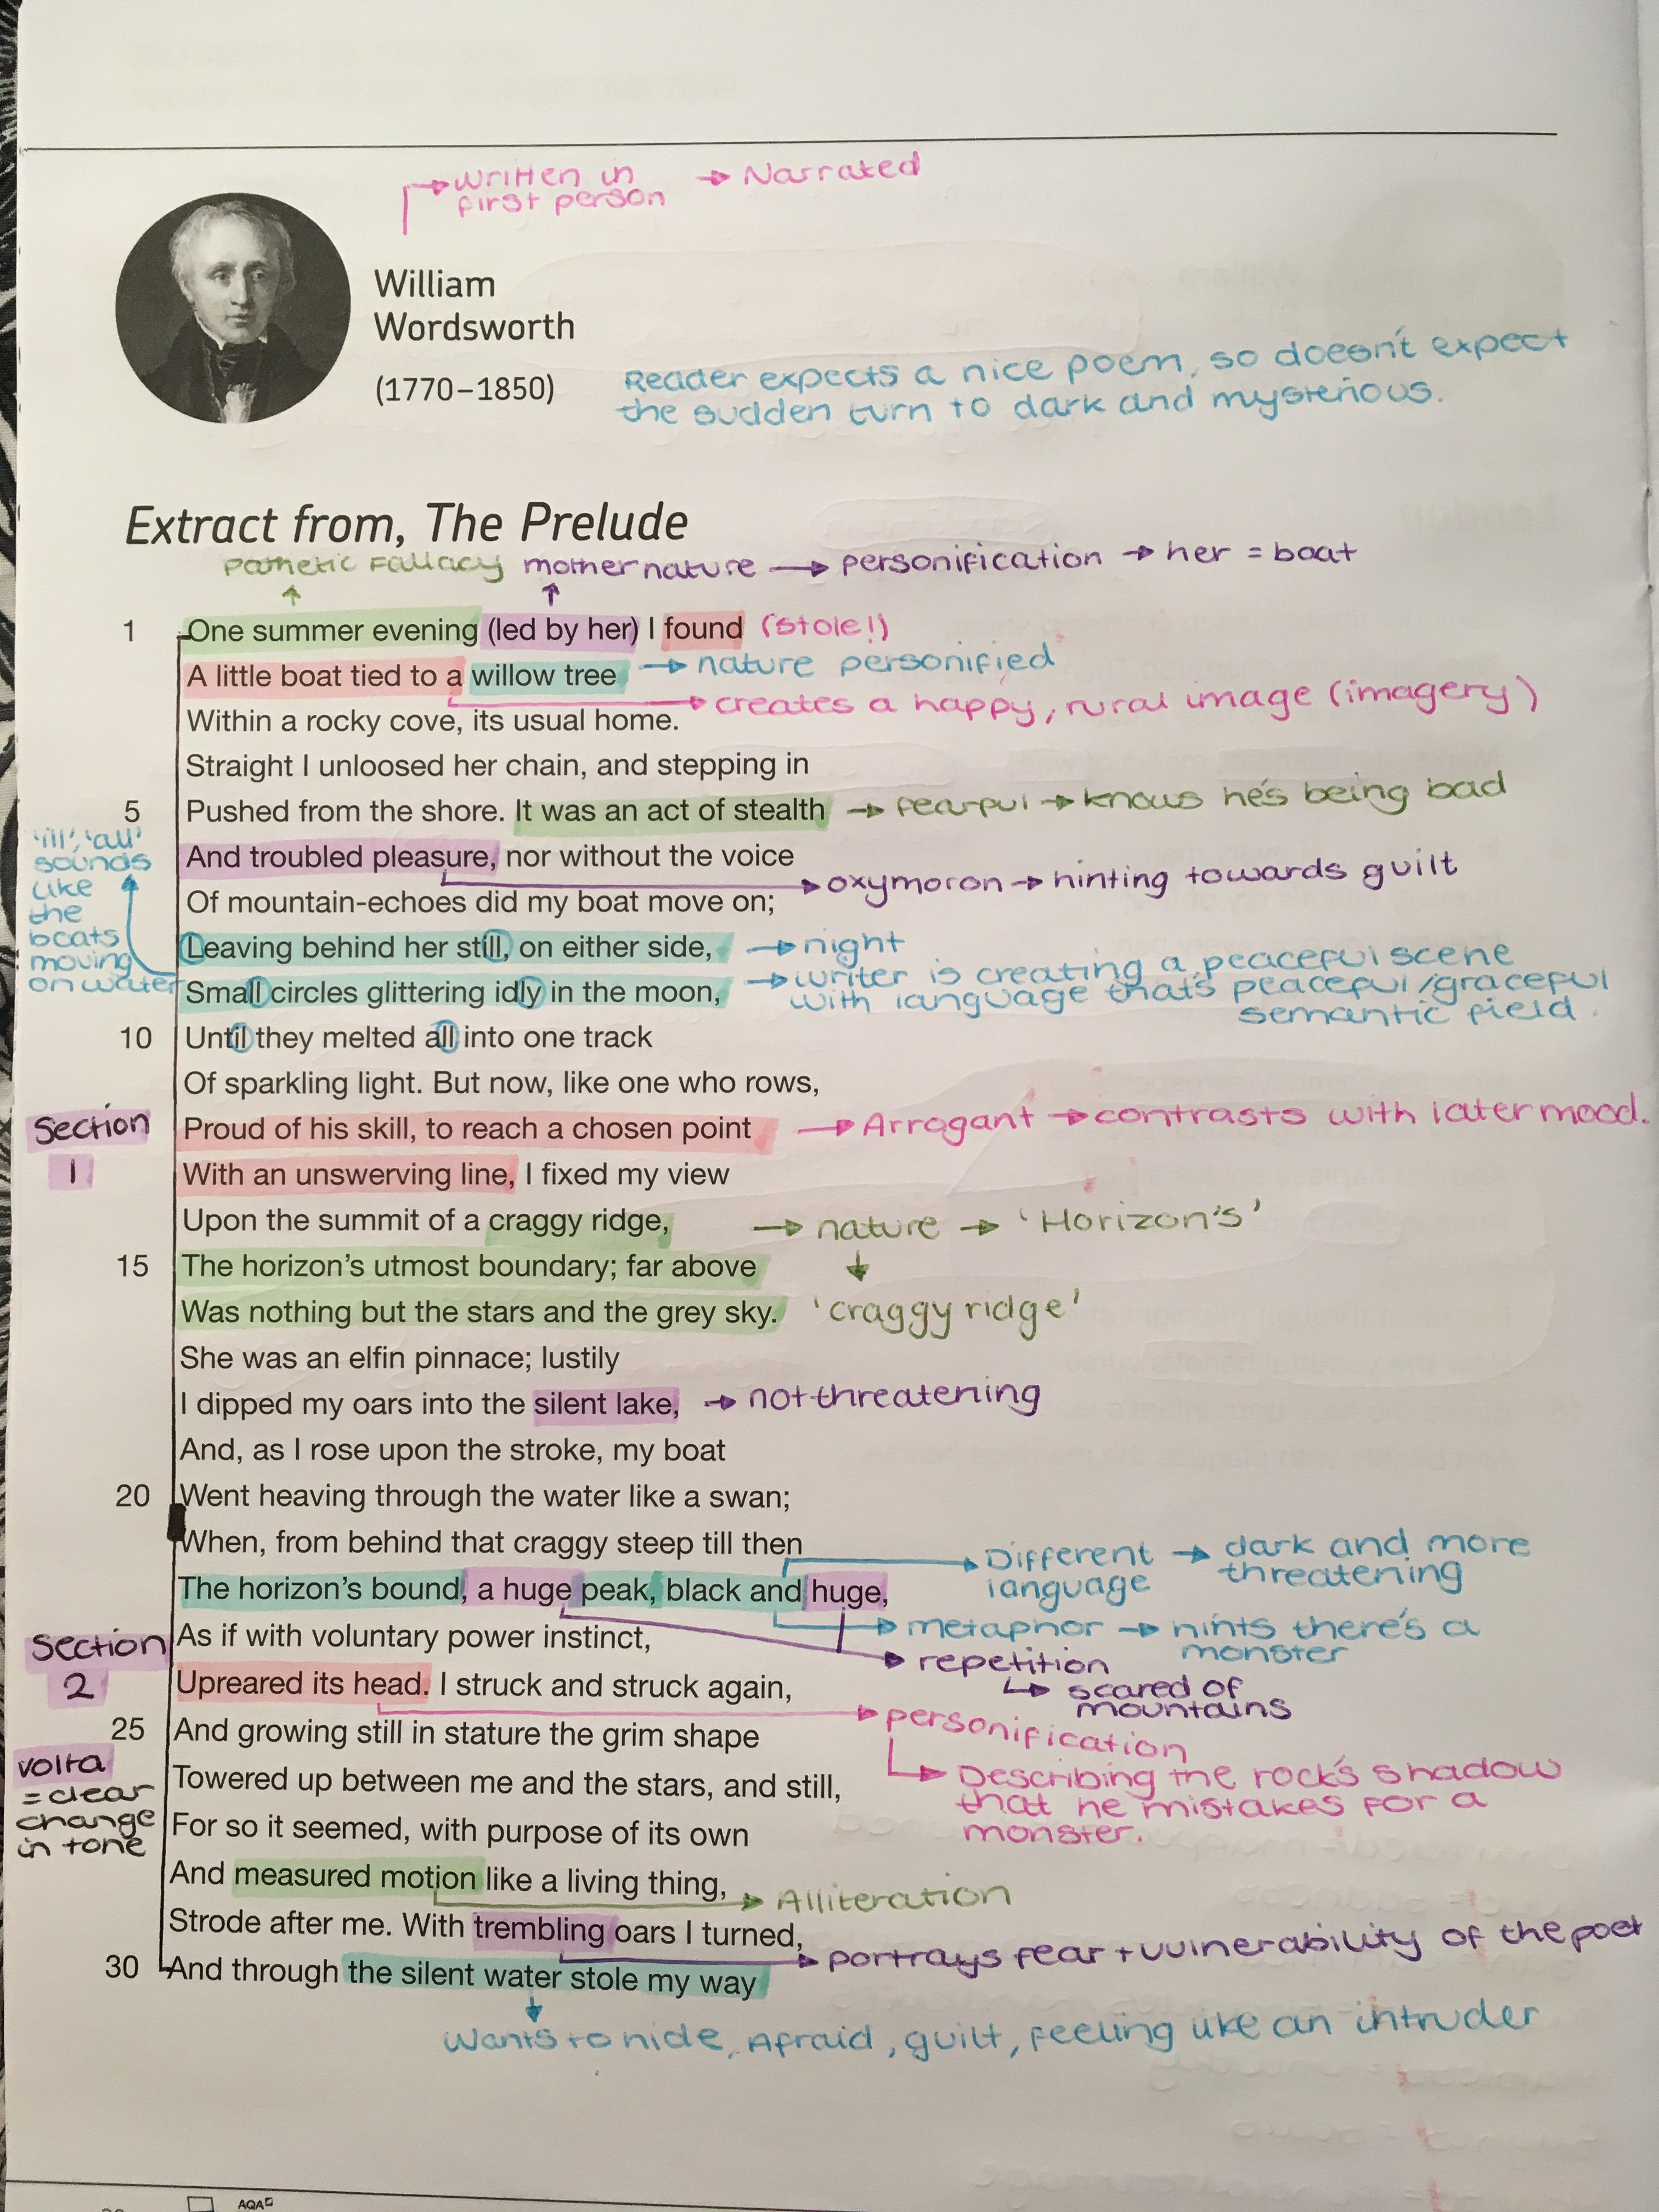 written in → Narrated
first person
William
Wordsworth
(1770–1850)
Reader expects a nice poem, so doesn't expect
the sudden turn to dark and mysterious.
Extract from, The Prelude
Pathetic Fallacy mother nature → personification → her = boat
1 One summer evening (led by her) I found (stole!)
A little boat tied to a willow tree → nature personified
→ creates a happy, rural image (imagery)
Within a rocky cove, its usual home.
Straight I unloosed her chain, and stepping in
5 Pushed from the shore. It was an act of stealth → fearful → knows he's being bad
And troubled pleasure, nor without the voice
→ oxymoron → hinting towards guilt
Of mountain-echoes did my boat move on;
'ill', 'all'
sounds
like
the
boats
moving
on water
Leaving behind her still, on either side, → night
Small circles glittering idly in the moon, → writer is creating a peaceful scene
with language thats peaceful/graceful
semantic field.
10 Until they melted all into one track
Of sparkling light. But now, like one who rows,
Section
1
Proud of his skill, to reach a chosen point → Arrogant → contrasts with later mood.
With an unswerving line, I fixed my view
Upon the summit of a craggy ridge, → nature → 'Horizon's'
15 The horizon's utmost boundary; far above
Was nothing but the stars and the grey sky. 'craggy ridge'
She was an elfin pinnace; lustily
I dipped my oars into the silent lake, → not threatening
And, as I rose upon the stroke, my boat
20 Went heaving through the water like a swan;
When, from behind that craggy steep till then
→ Different → dark and more
language threatening
The horizon's bound, a huge peak, black and huge,
→ metaphor → hints there's a
monster
As if with voluntary power instinct,
→ repetition
↳ scared of
mountains
Section
2
Upreared its head. I struck and struck again,
→ personification
↳ Describing the rock's shadow
that he mistakes for a
monster.
25 And growing still in stature the grim shape
volta
= clear
change
in tone
Towered up between me and the stars, and still,
For so it seemed, with purpose of its own
And measured motion like a living thing,
→ Alliteration
Strode after me. With trembling oars I turned,
→ portrays fear + vulnerability of the poet
30 And through the silent water stole my way
Wants to hide, Afraid, guilt, feeling like an intruder
AQA